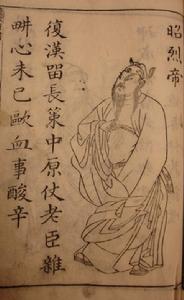 昭烈帝
復漢留長策中原仗老臣雜
畊心未已歐血事酸辛